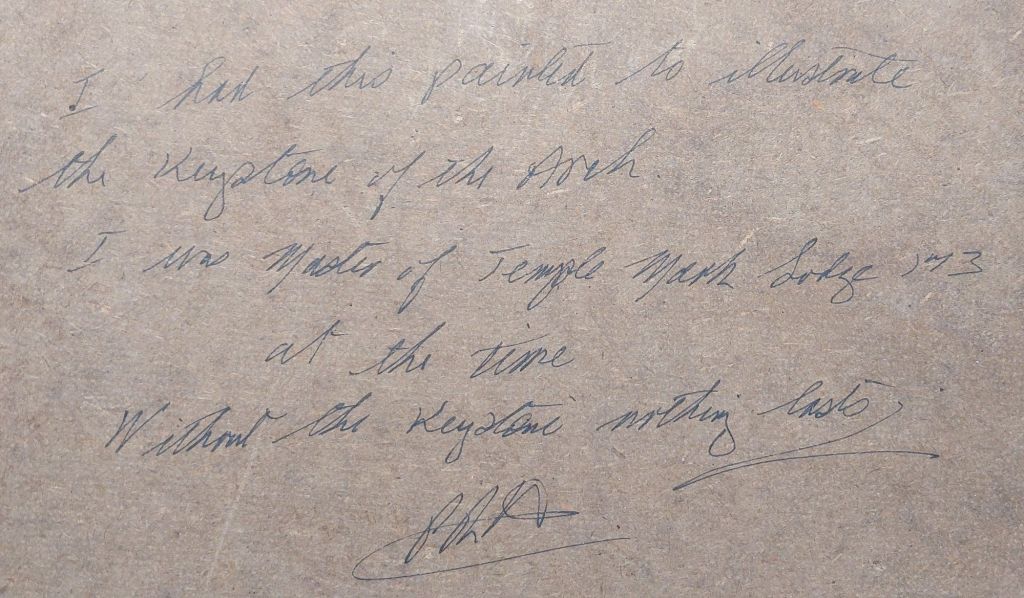 I had this painted to illustrate
the Keystone of the Arch.
I was Master of Temple Mark Lodge 173
at the time
Without the Keystone nothing lasts